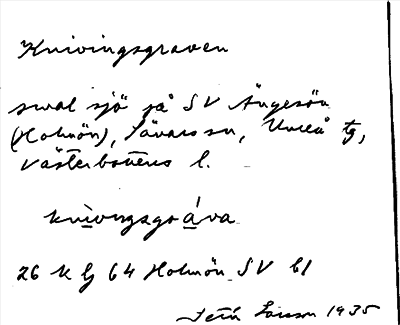 Knivingsgraven
smal sjö på SV Ängesön
(Holmön), Sävars sn, Umeå tg,
Västerbottens l.
knivingsgráva
26 K lj 64 Holmön SV bl
Larsson 1935